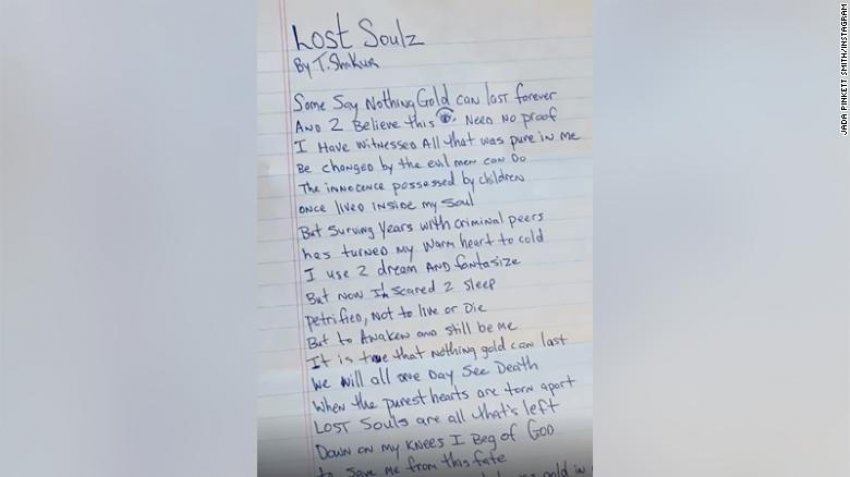 Lost Soulz
By T. Shakur
Some Say Nothing Gold can last forever
AND 2 Believe this 👁 Need No proof
I Have witnessed All that was pure in me
Be changed by the evil men can Do
The innocence possessed by children
once lived inside my Soul
But Surving Years with criminal peers
has turned my warm heart to cold
I use 2 dream AND fantasize
But now I'm Scared 2 Sleep
petrified, Not to live or Die
But to Awaken and still be me
It is true that nothing gold can last
We will all one Day See Death
When the purest hearts are torn apart
LOST Souls are all that's left
Down on my knees I Beg of GOD
to Save me from this fate
gold in
JADA PINKETT SMITH/INSTAGRAM